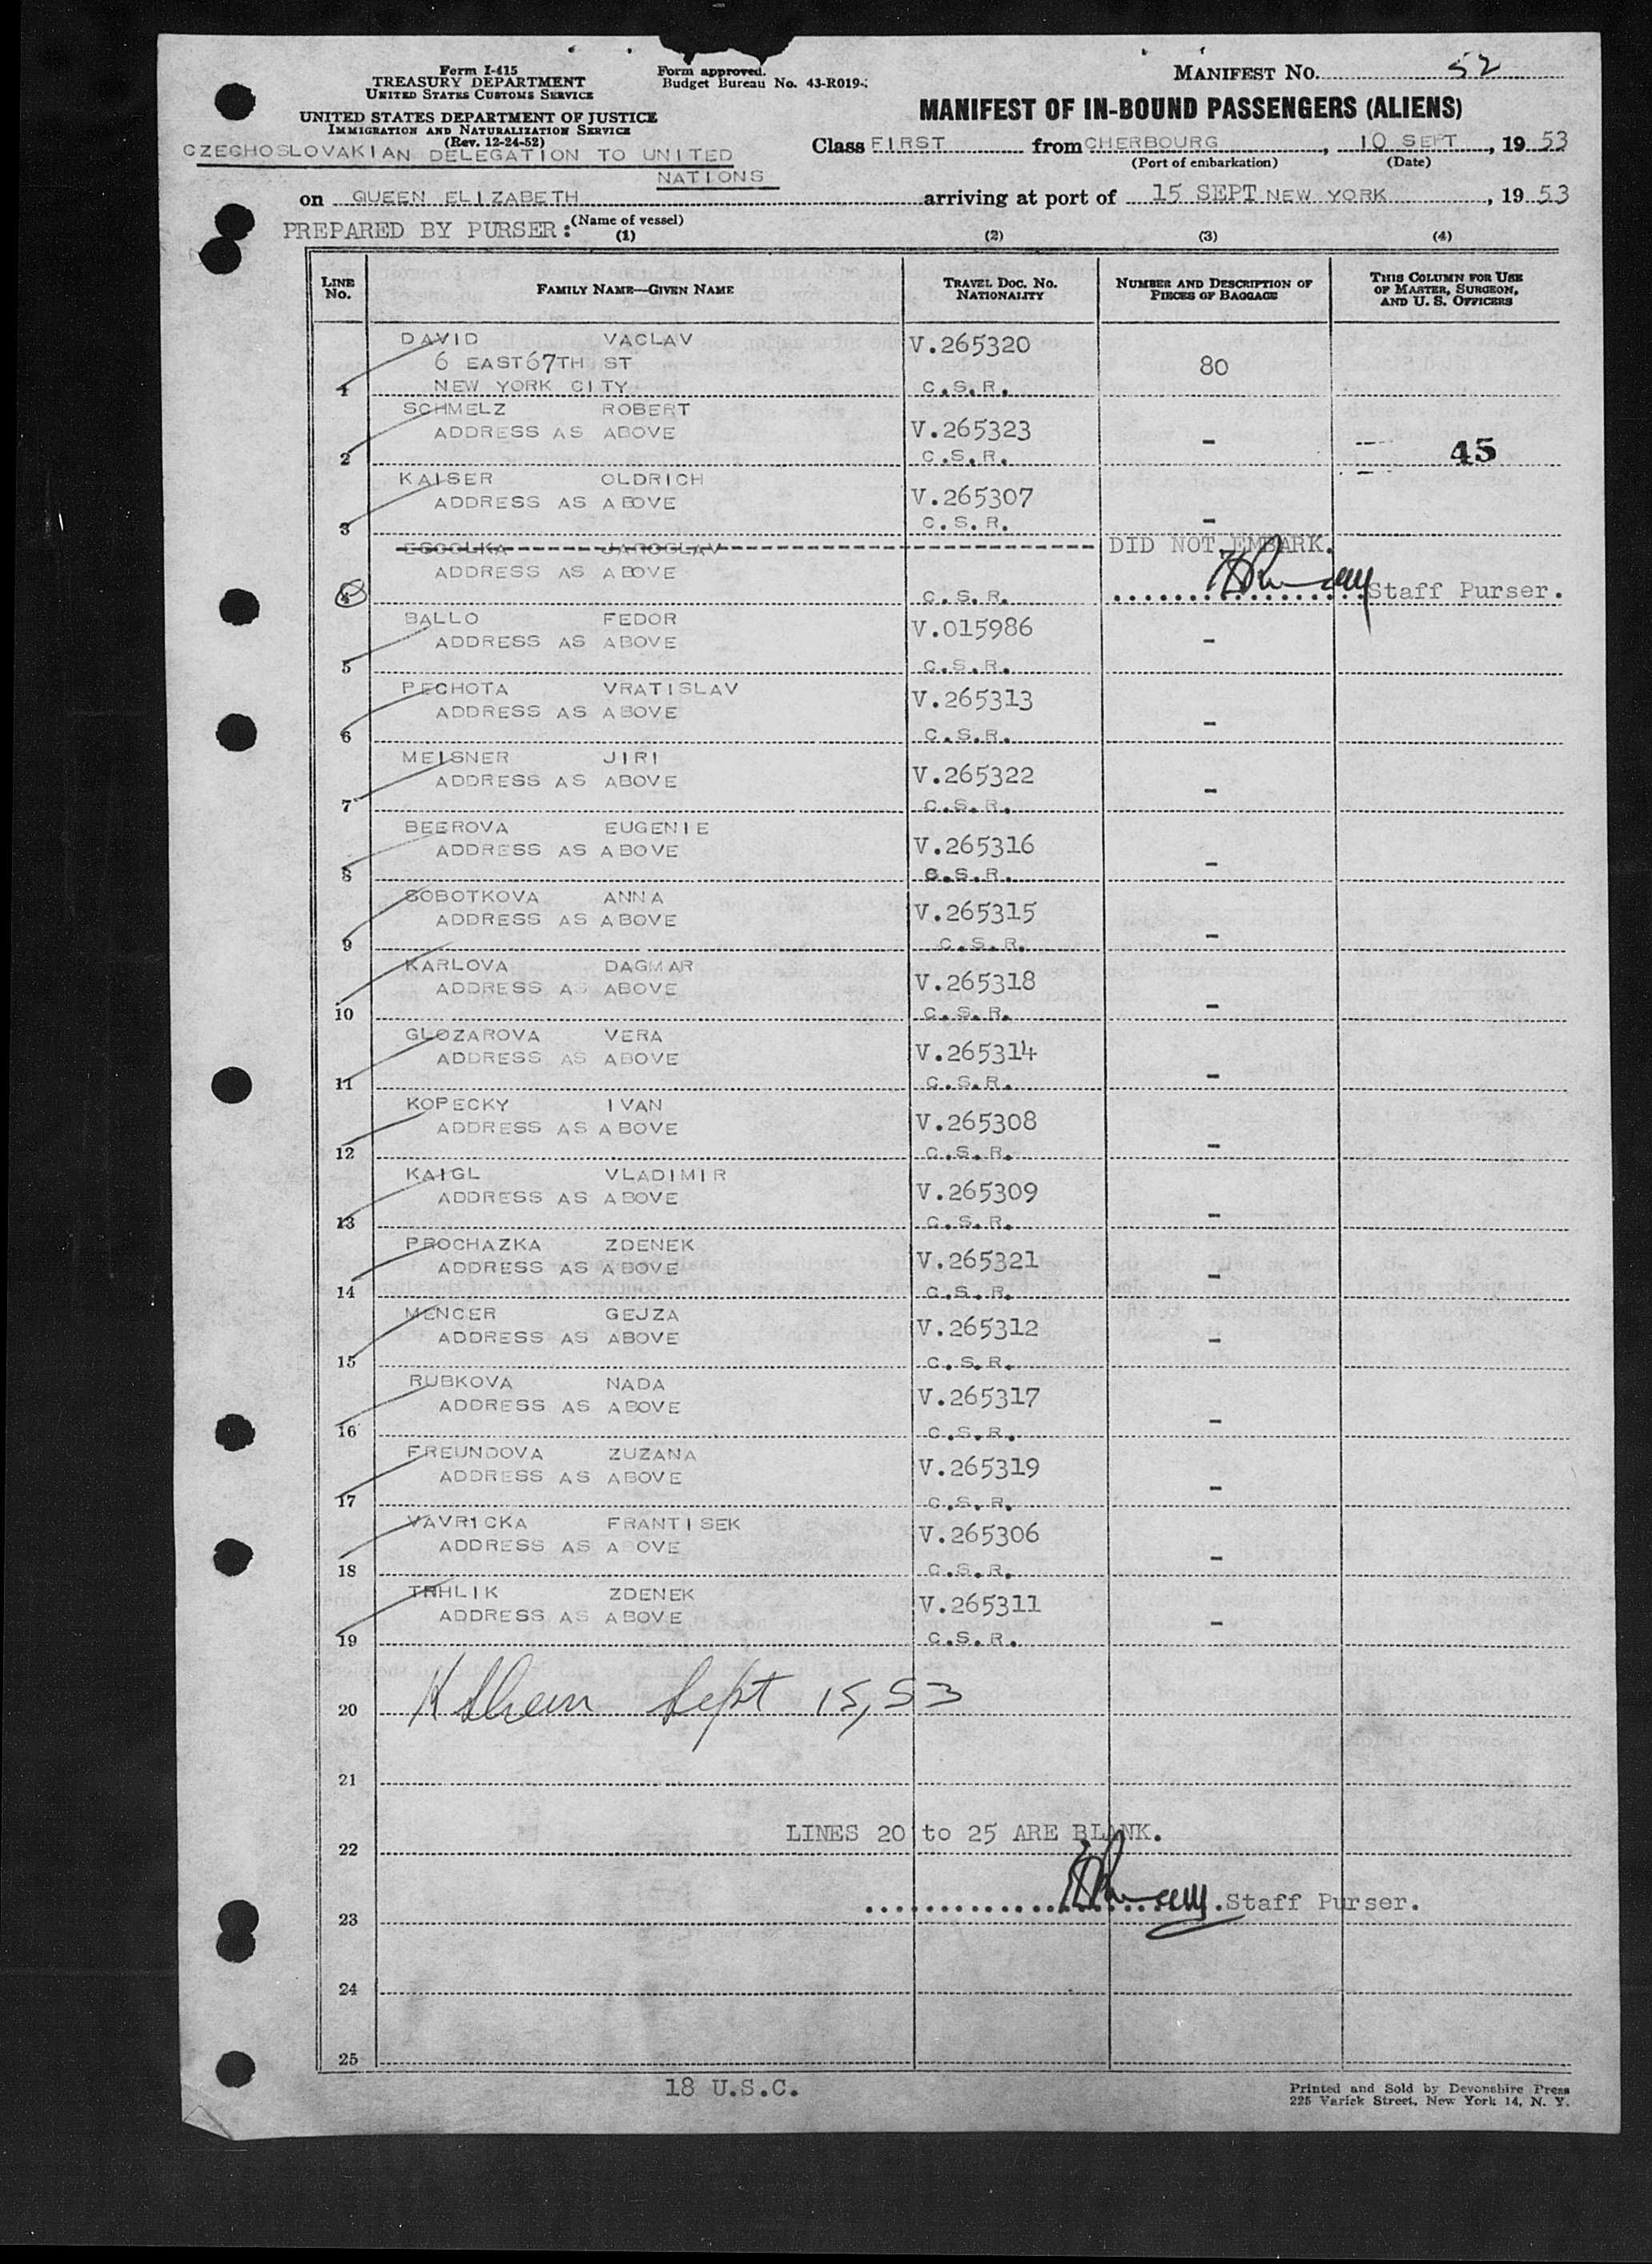 Form I-415
TREASURY DEPARTMENT
UNITED STATES CUSTOMS SERVICE
UNITED STATES DEPARTMENT OF JUSTICE
IMMIGRATION AND NATURALIZATION SERVICE
(Rev. 12-24-52)
Form approved.
Budget Bureau No. 43-R019-
MANIFEST NO. 52
MANIFEST OF IN-BOUND PASSENGERS (ALIENS)
CZECHOSLOVAKIAN DELEGATION TO UNITED
NATIONS
Class FIRST from CHERBOURG, 10 SEPT, 19 53
(Port of embarkation) (Date)
on QUEEN ELIZABETH arriving at port of 15 SEPT NEW YORK, 19 53
(Name of vessel)
PREPARED BY PURSER:
(1) (2) (3) (4)
LINE NO. FAMILY NAME—GIVEN NAME TRAVEL DOC. NO. NATIONALITY NUMBER AND DESCRIPTION OF PIECES OF BAGGAGE THIS COLUMN FOR USE OF MASTER, SURGEON, AND U. S. OFFICERS
DAVID VACLAV V.265320
6 EAST 67TH ST 80
1 NEW YORK CITY C.S.R.
SCHMELZ ROBERT
ADDRESS AS ABOVE V.265323 -
2 C.S.R. 45
KAISER OLDRICH
ADDRESS AS ABOVE V.265307
3 C.S.R. -
JAROSLAV DID NOT EMBARK.
ADDRESS AS ABOVE
4 C.S.R. Staff Purser.
BALLO FEDOR V.015986
ADDRESS AS ABOVE -
5 C.S.R.
PECHOTA VRATISLAV V.265313
ADDRESS AS ABOVE -
6 C.S.R.
MEISNER JIRI V.265322
ADDRESS AS ABOVE -
7 C.S.R.
BEEROVA EUGENIE V.265316
ADDRESS AS ABOVE -
8 C.S.R.
SOBOTKOVA ANNA V.265315
ADDRESS AS ABOVE -
9 C.S.R.
KARLOVA DAGMAR V.265318
ADDRESS AS ABOVE -
10 C.S.R.
GLOZAROVA VERA V.265314
ADDRESS AS ABOVE -
11 C.S.R.
KOPECKY IVAN V.265308
ADDRESS AS ABOVE -
12 C.S.R.
KAIGL VLADIMIR V.265309
ADDRESS AS ABOVE -
13 C.S.R.
PROCHAZKA ZDENEK V.265321
ADDRESS AS ABOVE -
14 C.S.R.
MENCER GEJZA V.265312
ADDRESS AS ABOVE -
15 C.S.R.
RUBKOVA NADA V.265317
ADDRESS AS ABOVE -
16 C.S.R.
FREUNDOVA ZUZANA V.265319
ADDRESS AS ABOVE -
17 C.S.R.
VAVRICKA FRANTISEK V.265306
ADDRESS AS A OVE -
18 C.S.R.
TRHLIK ZDENEK V.265311
ADDRESS AS ABOVE -
19 C.S.R.
20 Sept 15, 53
21
LINES 20 to 25 ARE BLANK.
22
Staff Purser.
23
24
25
18 U.S.C.
Printed and Sold by Devonshire Press
225 Varick Street, New York 14, N. Y.